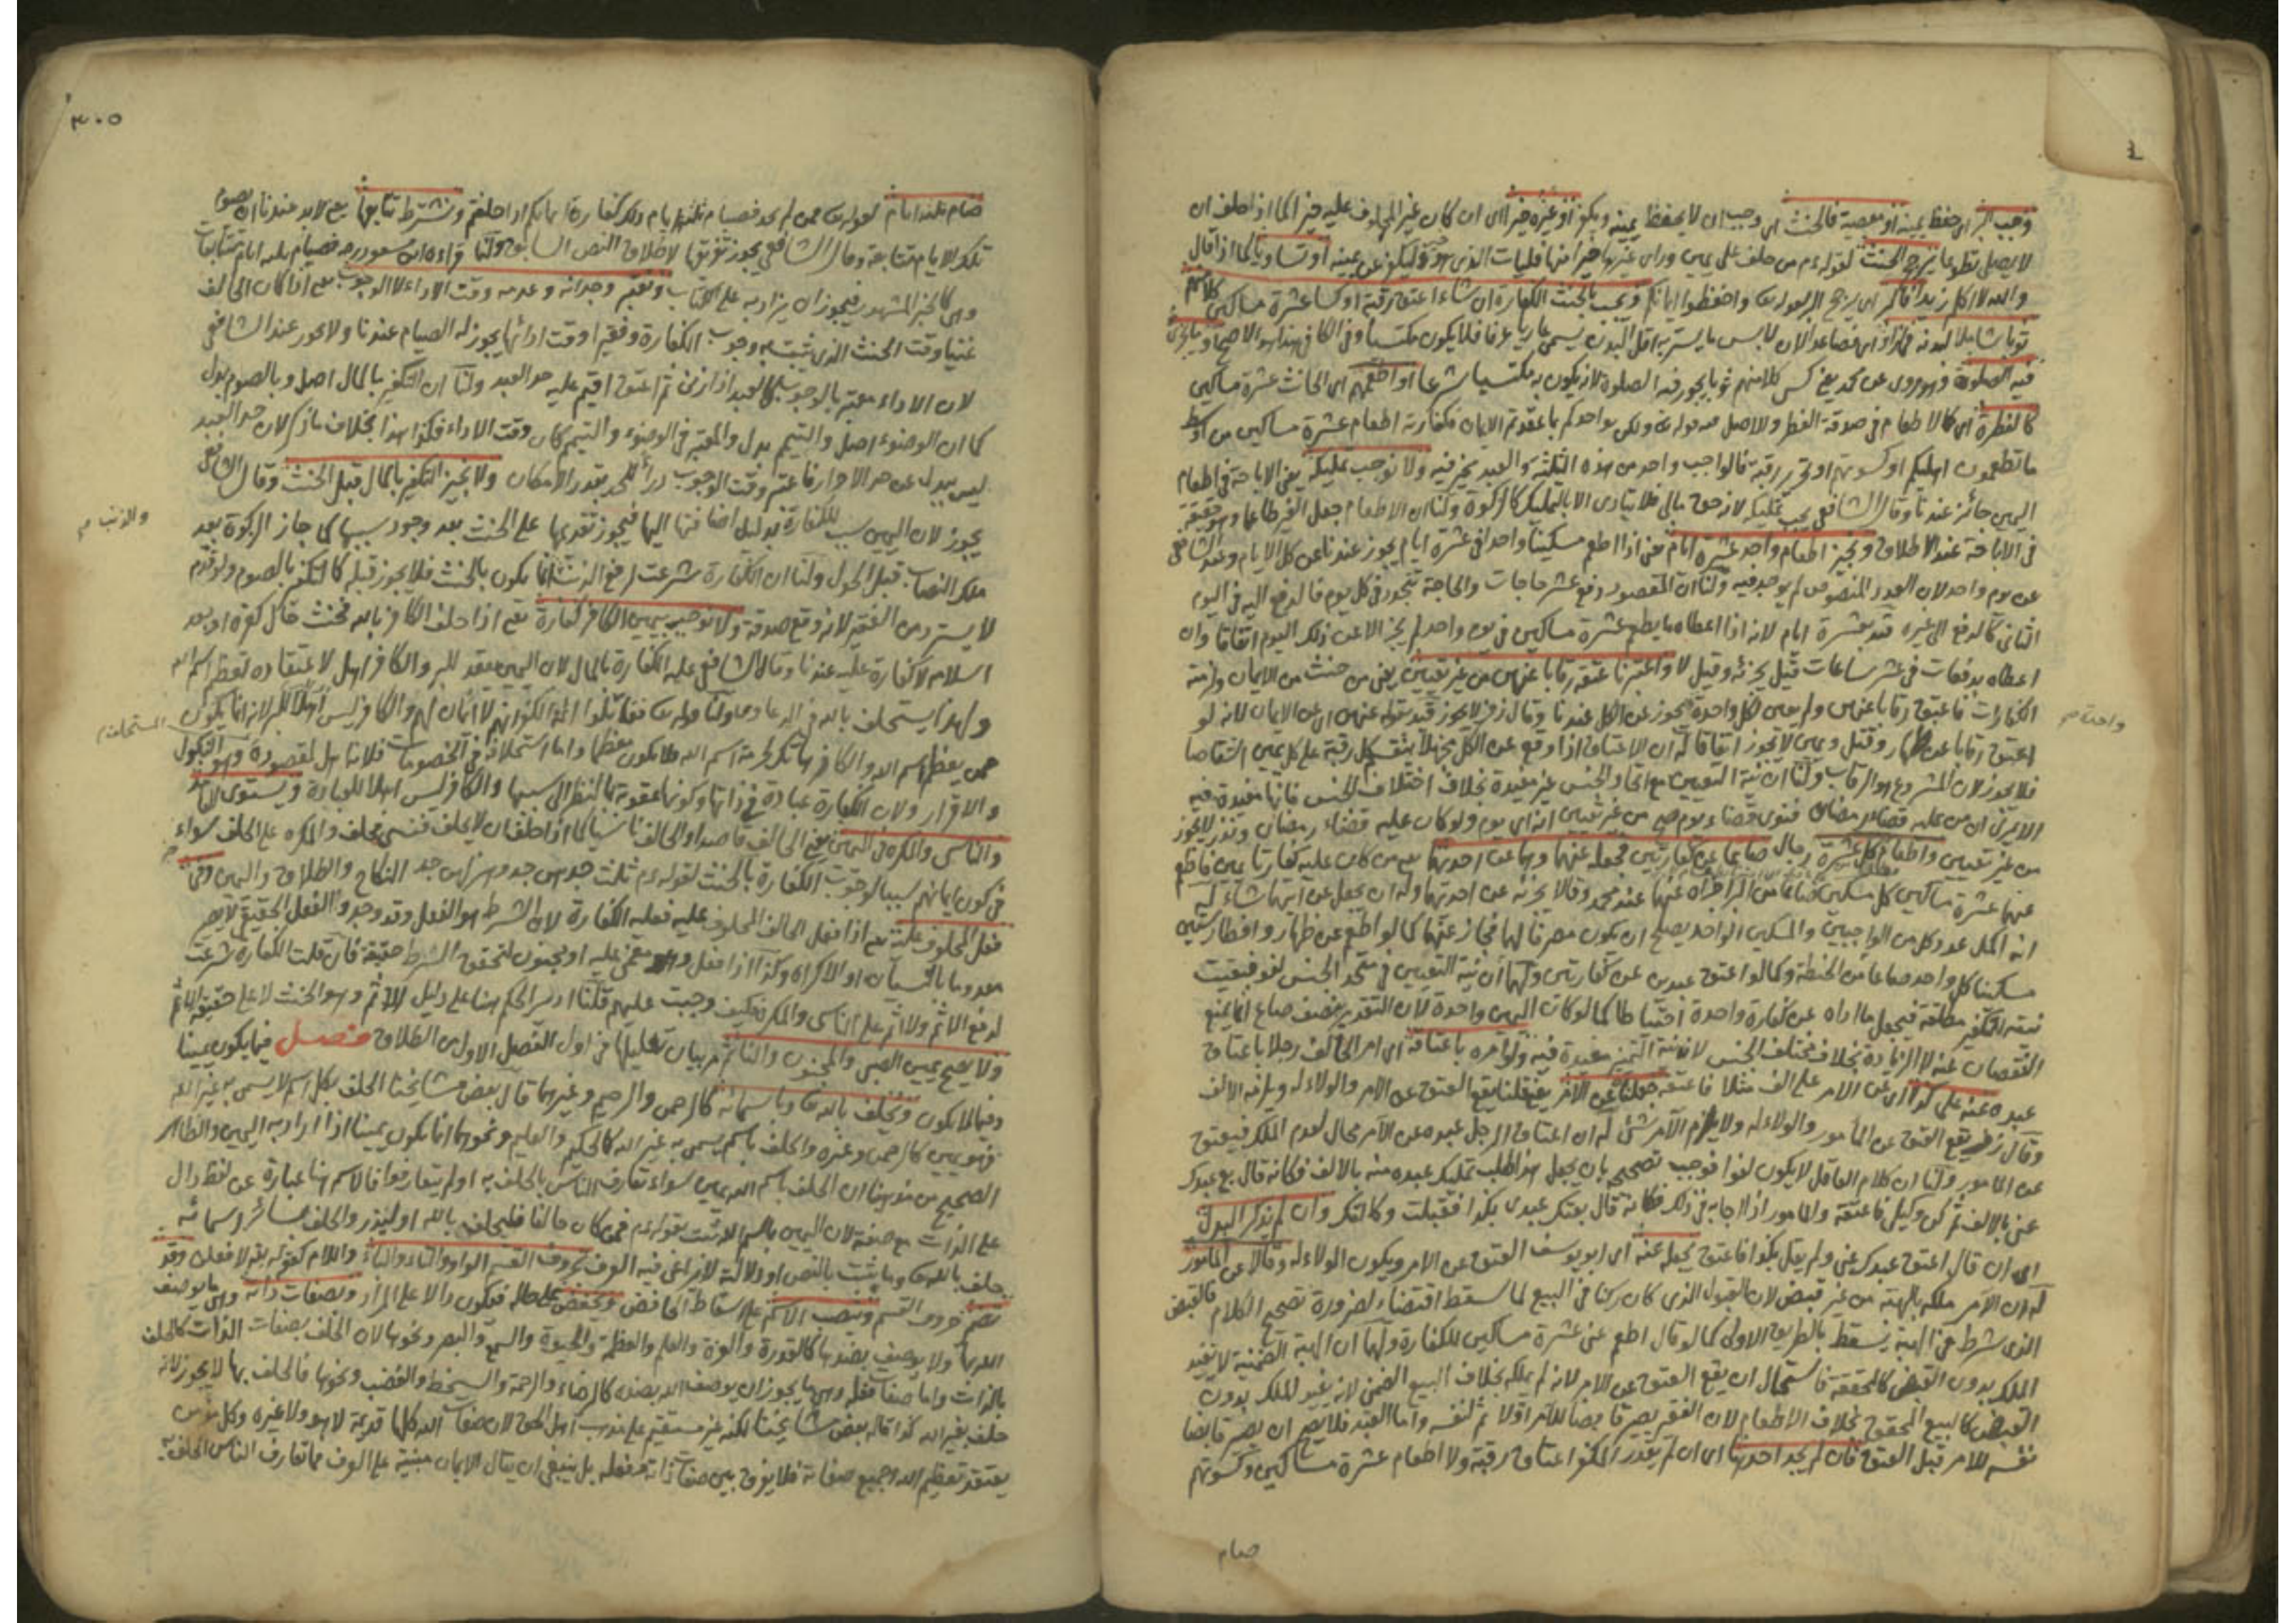 وجب البر اى حفظ يمينه او معصية فالحنث اى وجب ان لا يحفظ يمينه ويكفر او غيره خيرا اى ان كان غير المحلوف عليه خيرا كما اذا حلف ان
لا يصلى تطوعا يرجح الحنث لقوله عم من حلف على يمين ورأى غيرها خيرا منها فليأت الذى هو خير وليكفر عن يمينه او تساويا كما اذا قال
والله لا اكل زيدا فالبر اى يرجح البر لقوله تعا واحفظوا ايمانكم وتجب بالحنث الكفارة ان شاء اعتق رقبة او كسا عشرة مساكين كلا منهم
ثوبا شاملا لبدنه فما زاد اى فصاعدا لان لابس ما يستر به اقل البدن يسمى عاريا عرفا فلا يكون مكتسيا وفى الكافى هذا هو الاصح وما يجوز
فيه الصلوة وهو مروى عن محمد يعنى كسى كلا منهم ثوبا يجوز فيه الصلوة لانه يكون به مكتسيا شرعا او اطعمهم اى الحانث عشرة مساكين
كالفطرة اى كالاطعام فى صدقة الفطر والاصل فيه قوله تعا ولكن يواخذكم بما عقدتم الايمان فكفارته اطعام عشرة مساكين من اوسط
ما تطعمون اهليكم او كسوتهم او تحرير رقبة فالواجب واحد من هذه الثلثة والعبد يخير فيه ولا نوجب تمليكه يعنى الاباحة فى اطعام
اليمين جائز عندنا وقال الشافعى يجب تمليكه لانه حق مالى فلا يتادى الا بالتمليك كالزكوة ولنا ان الاطعام جعل الغير طاعما وهو حقيقة
فى الاباحة عند الاطلاق ونجيز اطعام واحد عشرة ايام حتى اذا اطعم مسكينا واحدا فى عشرة ايام يجوز عندنا عن كل الايام وعند الشافعى
عن يوم واحد لان العدد المنصوص لم يوجد فيه ولنا ان المقصود دفع عشر حاجات والحاجة تتجدد فى كل يوم فالدفع اليه فى اليوم
الثانى كالدفع الى غيره قيد بعشرة ايام لانه اذا اعطاه ما يطعم عشرة مساكين فى يوم واحد لم يجز الا عن ذلك اليوم اتفاقا وان
اعطاه بدفعات فى عشر ساعات قيل يجزئه وقيل لا واعتبرنا عتقه رقابا عنهن من غير تعيين يعنى من حنث من الايمان ولزمته
الكفارات فاعتق رقابا عنهن ولم يعين لكل واحدة يجوز عن الكل عندنا وقال زفر لا يجوز قيد بقوله عنهن اى عن الايمان لانه لو
اعتق رقابا عن ظهار وقتل ويمين لا يجوز اتفاقا له ان الاعتاق اذا وقع عن الكل مجملا ينقسم كل رقبة على كل يمين انتقاصا
فلا يجوز لان المشروع هو الرقاب ولنا ان نية التعيين مع اتحاد الجنس غير مفيدة بخلاف اختلاف الجنس فانها مفيدة فيه
الا يرى ان من عليه قضاء رمضان فنوى قضاء يوم صح من غير تعيين انه اى يوم ولو كان عليه قضاء رمضان ونذر لا يجوز
من غير تعيين واطعام كل عشرة رجال صاعا عن كفارتين نجعله عنهما وهما عن احديهما
عنهما عشرة مساكين كل مسكين صاعا من البر اجزاه عنهما عند محمد وقالا يجزئه عن احديهما وله ان يجعل عن ايتهما شاء له
انه اكمل عدد كل من الواجبين والمسكين الواحد يصلح ان يكون مصرفا لهما فجاز عنهما كما لو اطعم عن ظهار وافطار ستين
مسكينا كل واحد صاعا من الحنطة وكما لو اعتق عبدين عن كفارتين ولهما ان نية التعيين فى متحد الجنس لغو فبقيت
نيته التكفير مطلقة فيجعل ما اداه عن كفارة واحدة احتياطا كما لو كان اليمين واحدة لان التقدير بنصف صاع انما يمنع
النقصان عنه لا الزيادة بخلاف مختلف الجنس لان نية التميز مفيدة فيه ولو امره باعتاقه اى امر الحالف رجلا باعتاق
عبده عنه على كذا اى عن الآمر على الف مثلا فاعتقه جعلناه عن الآمر يعنى قلنا يقع العتق عن الآمر والولاء له ويلزمه الالف
وقال زفر يقع العتق عن المأمور والولاء له ولا يلزم الآمر شئ له ان اعتاق الرجل عبده عن الآمر محال لعدم الملك فيعتق
عن المامور ولنا ان كلام العاقل لا يكون لغوا فوجب تصحيحه بان يجعل هذا طلب تمليك عبده منه بالالف فكانه قال بع عبدك
عنى بالالف ثم كن وكيلى فاعتقه والمامور اذا اجابه فى ذلك فكانه قال بعتك عبدى بكذا فقبلت وكالتك وان لم يذكر البدل
اى ان قال اعتق عبدك عنى ولم يقل بكذا فاعتق يجعله عنه اى ابو يوسف العتق عن الامر ويكون الولاء له وقالا عن المأمور
له ان الآمر ملكه بالهبة من غير قبض لان القبول الذى كان ركنا فى البيع لما سقط اقتضاء لضرورة تصحيح الكلام فالقبض
الذى شرط فى الهبة يسقط بالطريق الاولى كما لو قال اطعم عنى عشرة مساكين للكفارة ولهما ان الهبة الضمنية لا تفيد
الملك بدون القبض كالمحققة فاستحال ان يقع العتق عن الامر لانه لم يملكه بخلاف البيع الضمنى لانه يفيد الملك بدون
القبض كالبيع المحقق بخلاف الاطعام لان الفقير يصير قابضا للآمر اولا ثم لنفسه واما العبد فلا يصح ان يصير قابضا
نفسه للامر قبل العتق فان لم يجد احديها اى ان لم يقدر المكفر اعتاق رقبة ولا اطعام عشرة مساكين وكسوتهم
صيام
٣٠٥
صام ثلثة ايام لقوله تعا فمن لم يجد فصيام ثلثة ايام ذلك كفارة ايمانكم اذا حلفتم ونشترط تتابعها يعنى لابد عندنا ان يصوم
تلك الايام متتابعة وقال الشافعى يجوز تفريقها لاطلاق النص السابق ولنا قراءة ابن مسعود رضه فصيام ثلثة ايام متتابعات
وهى كالخبر المشهور فيجوز ان يزاد به على الكتاب ونعتبر وجدانه وعدمه وقت الاداء لا الوجوب يعنى اذا كان الحالف
غنيا وقت الحنث الذى ثبت به وجوب الكفارة وفقيرا وقت ادائها يجوز له الصيام عندنا ولا يجوز عند الشافعى
لان الاداء معتبر بالوجوب كالعبد اذا زنى ثم اعتق اقيم عليه حد العبد ولنا ان التكفير بالمال اصل وبالصوم بدل
كما ان الوضوء اصل والتيمم بدل والمعتبر فى الوضوء والتيمم كان وقت الاداء فكذا هذا بخلاف ما ذكر لان حد العبد
ليس ببدل عن حد الاحرار فاعتبر وقت الوجوب درأ للحد بقدر الامكان ولا نجيز التكفير بالمال قبل الحنث وقال الشافعى
يجوز لان اليمين سبب للكفارة بدليل اضافتها اليها فيجوز تقديمها على الحنث بعد وجود سببها كما جاز الزكوة بعد
ملك النصاب قبل الحول ولنا ان الكفارة شرعت لرفع الذنب انما يكون بالحنث فلا يجوز قبله كالتكفير بالصوم ولو قدم
لا يسترد من الفقير لانه وقع صدقة ولا نوجب بيمين الكافر كفارة يعنى اذا حلف الكافر بالله فحنث حال كفره او بعد
اسلامه لا كفارة عليه عندنا وقال الشافعى عليه الكفارة بالمال لان اليمين يعقد للبر والكافر اهل لاعتقاده تعظيم اسم الله
ولهذا يستحلف بالله فى الدعاوى ولنا قوله تعا فقاتلوا ائمة الكفر انهم لا ايمان لهم والكافر ليس اهلا للبر لانه انما يكون
ممن يعظم اسم الله والكافر هاتك لحرمة اسم الله فلا يكون معظما واما استحلافه فى الخصومات فلانه اهل لمقصوده وهو النكول
والاقرار ولان الكفارة عبادة فى ذاتها وكونها عقوبة بالنظر الى سببها والكافر ليس اهلا للعبادة ويستوى القاصد
والناسى والمكره فى اليمين يعنى الحالف قاصدا والحالف ناسيا كما اذا حلف ان لا يحلف فنسى فحلف والمكره على الحلف سواء
فى كون ايمانهم سببا لوجوب الكفارة بالحنث لقوله عم ثلث جدهن جد وهزلهن جد النكاح والطلاق واليمين وفى
فعل المحلوف عليه يعنى اذا فعل الحالف المحلوف عليه فعليه الكفارة لان الشرط هو الفعل وقد وجد والفعل الحقيقى لا يصير
معدوما بالنسيان او الاكراه وكذا اذا فعل وهو مغمى عليه او مجنون لتحقق الشرط حقيقة فان قلت الكفارة شرعت
لرفع الاثم ولا اثم على الناسى والمكره فكيف وجبت عليهم قلنا ادير الحكم هنا على دليل الاثم وهو الحنث لا على حقيقة الاثم
ولا يصح يمين الصبى والمجنون والنائم مر بيان تعليلها فى اول الفصل الاول من الطلاق فصل فيما يكون يمينا
وفيما لا يكون ونحلف بالله تعا وباسمائه كالرحمن والرحيم وغيرهما قال بعض مشايخنا الحلف بكل اسم لا يسمى به غير الله
فهو يمين كالرحمن وغيره والحلف باسم يسمى به غير الله كالحكيم والعليم ونحوهما انما يكون يمينا اذا اراد به اليمين والظاهر
الصحيح من مذهبنا ان الحلف باسم الله يمين سواء تعارف الناس بالحلف به او لم يتعارفوا فالاسم هنا عبارة عن لفظ دال
على الذات مع صفة لان اليمين باسم الله ثبت بقوله عم فمن كان حالفا فليحلف بالله او ليذر والحلف بسائر اسمائه
حلف بالله تعا وما ثبت بالنص او دلالة لا يراعى فيه العرف بحروف القسم الواو والباء والتاء واللام كقوله لله لا فعلن وقد
تضمر حروف القسم وينصب الاسم على اسقاط الخافض ويخفض على حاله فيكون دالا على المراد وبصفات ذاته وهى ما يوصف
الله بها ولا يوصف بضدها كالقدرة والعزة والعلم والعظمة والحيوة والسمع والبصر ونحوها لان الحلف بصفات الذات كالحلف
بالذات واما صفات فعله وهى ما يجوز ان يوصف الله بضده كالرضاء والرحمة والسخط والغضب ونحوها فالحلف بها لا يجوز لانه
حلف بغير الله كذا قاله بعض مشايخنا لكنه غير مستقيم على مذهب اهل الحق لان صفات الله كلها قديمة لا هو ولا غيره وكل مؤمن
يعتقد تعظيم الله بجميع صفاته فلا يفرق بين صفات ذاته وفعله بل ينبغى ان يقال الايمان مبنية على العرف فما تعارف الناس الحلف به